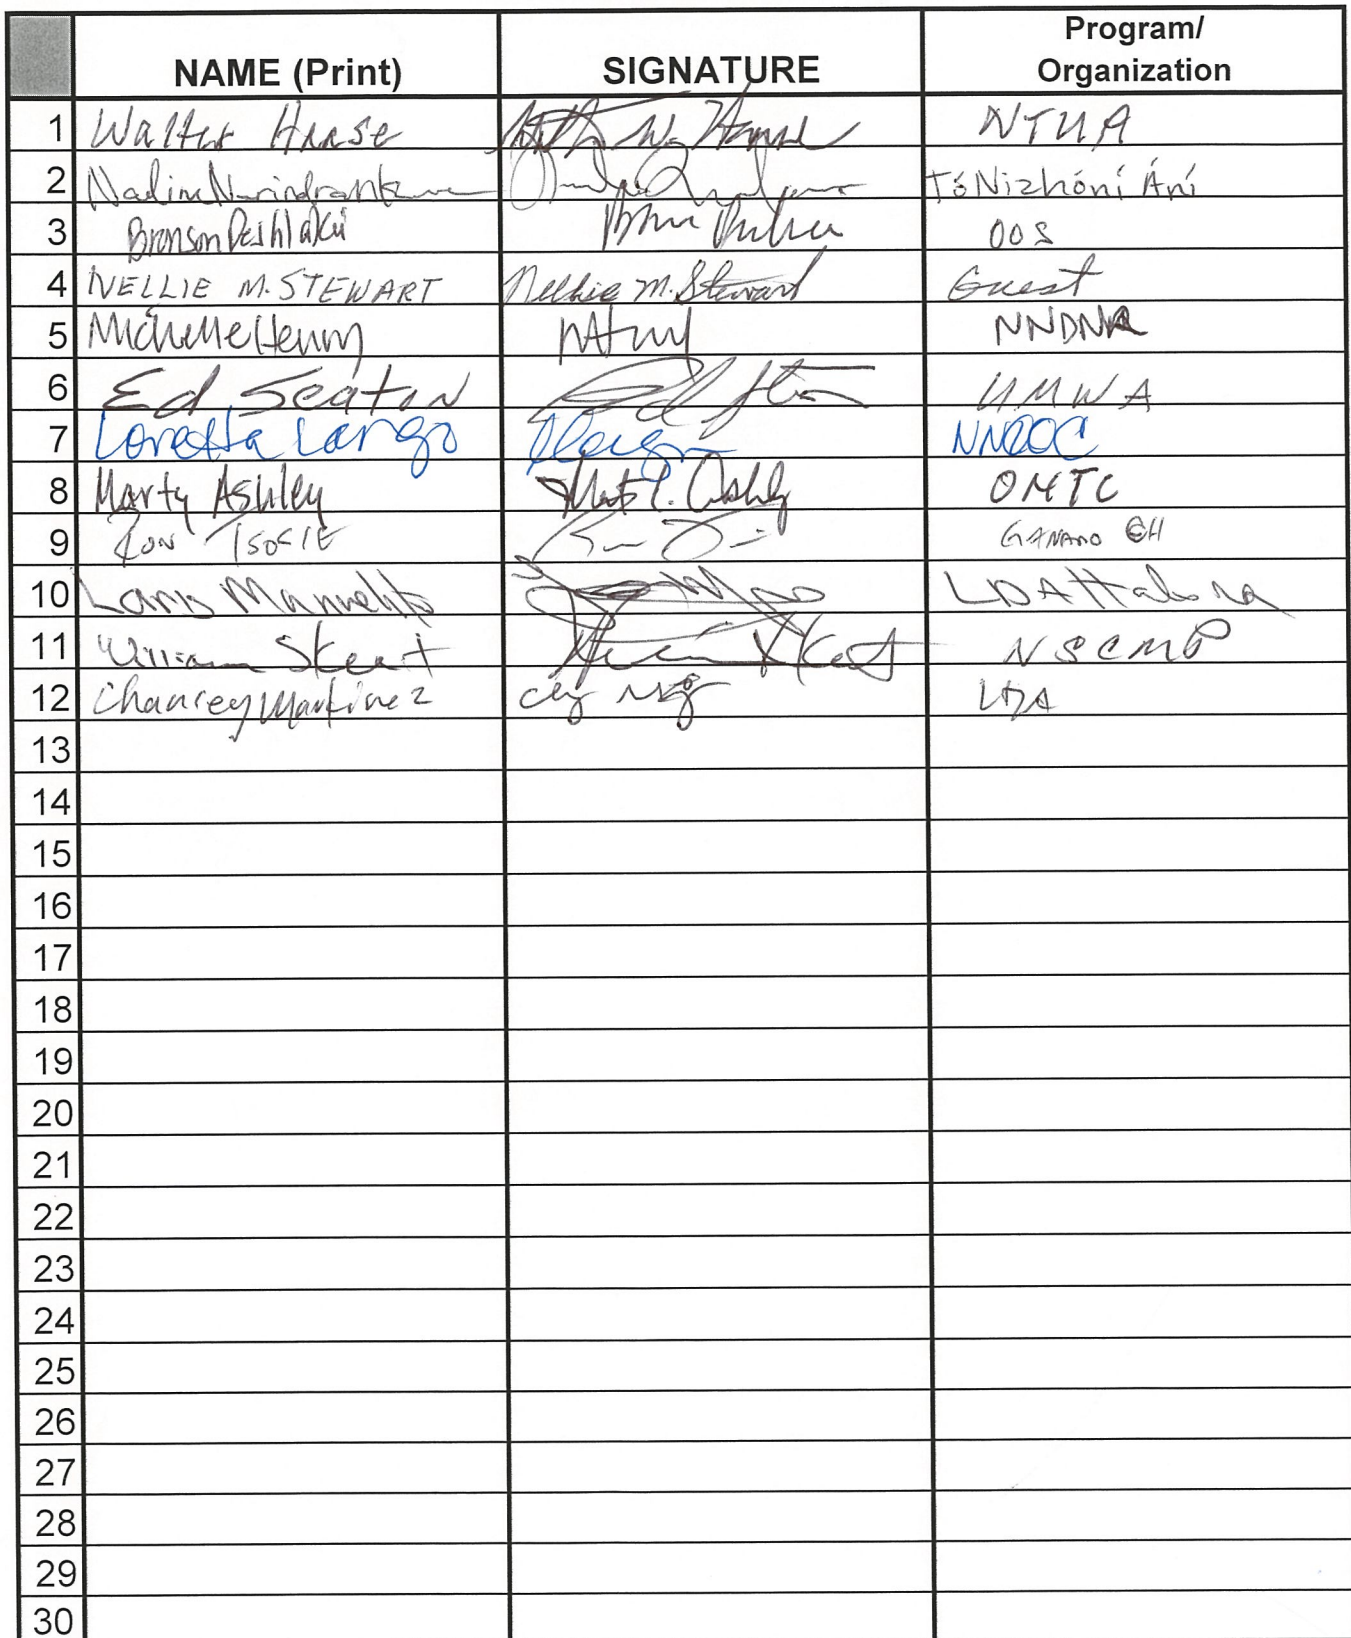 NAME (Print) SIGNATURE Program/
Organization
1 Walter Haase Walter W. Haase NTUA
2 Nadine Tó Nizhóní Ání
3 Bronson Peshlakai OOS
4 NELLIE M. STEWART Nellie M. Stewart Guest
5 Michelle Henry NNDNR
6 Ed Seaton UMWA
7 Loretta Largo
8 Marty Ashley Ashley OMTC
9 RON TSOSIE GANADO CH
10 Manuelito LDA
11 William Skeet Skeet NSCMP
12 Chancey Martinez LDA
13
14
15
16
17
18
19
20
21
22
23
24
25
26
27
28
29
30